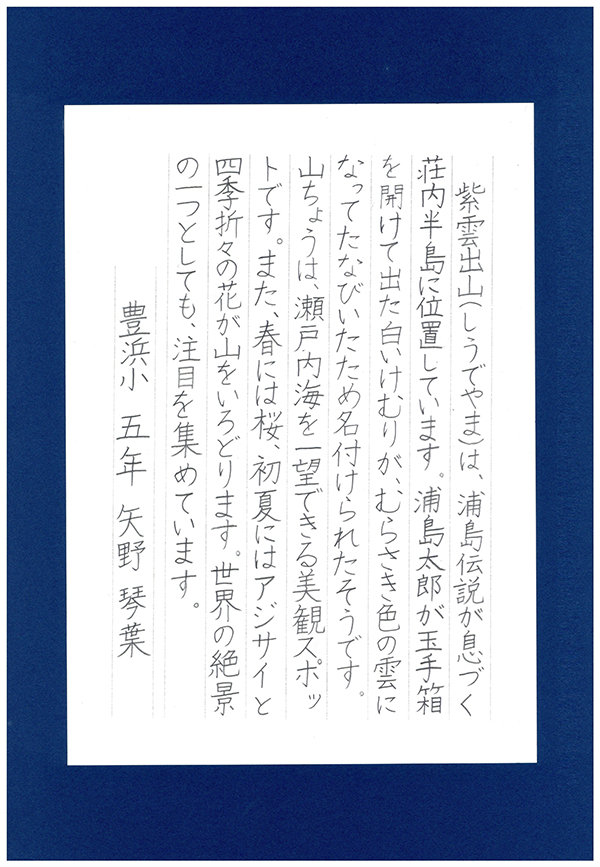 紫雲出山(しうでやま)は、浦島伝説が息づく
荘内半島に位置しています。浦島太郎が玉手箱
を開けて出た白いけむりが、むらさき色の雲に
なってたなびいたため名付けられたそうです。
山ちょうは、瀬戸内海を一望できる美観スポッ
トです。また、春には桜、初夏にはアジサイと
四季折々の花が山をいろどります。世界の絶景
の一つとしても、注目を集めています。
豊浜小 五年 矢野琴葉